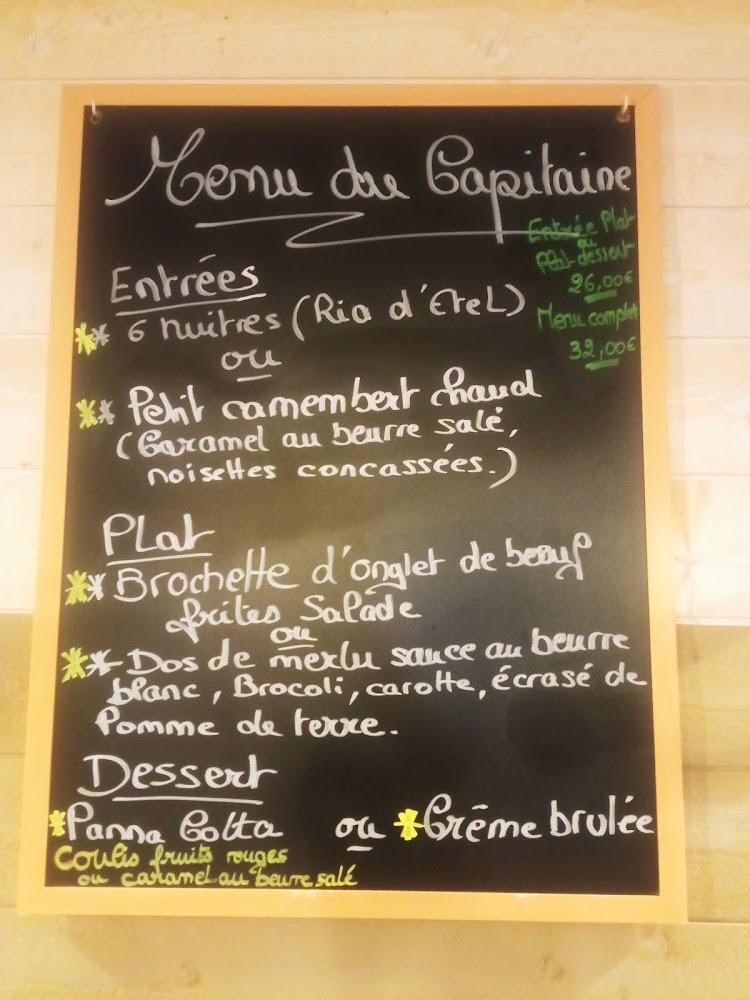 Menu du Capitaine
Entrée Plat
ou
Plat-dessert
26,00€
Menu complet
32,00€
Entrées
** 6 huitres (Ria d'Etel)
ou
** Petit camembert chaud
(Caramel au beurre salé,
noisettes concassées.)
Plat
** Brochette d'onglet de boeuf
frites Salade
ou
** Dos de merlu sauce au beurre
blanc, Brocoli, carotte, écrasé de
Pomme de terre.
Dessert
*Panna Cotta ou *Crême brulée
Coulis fruits rouges
ou caramel au beurre salé